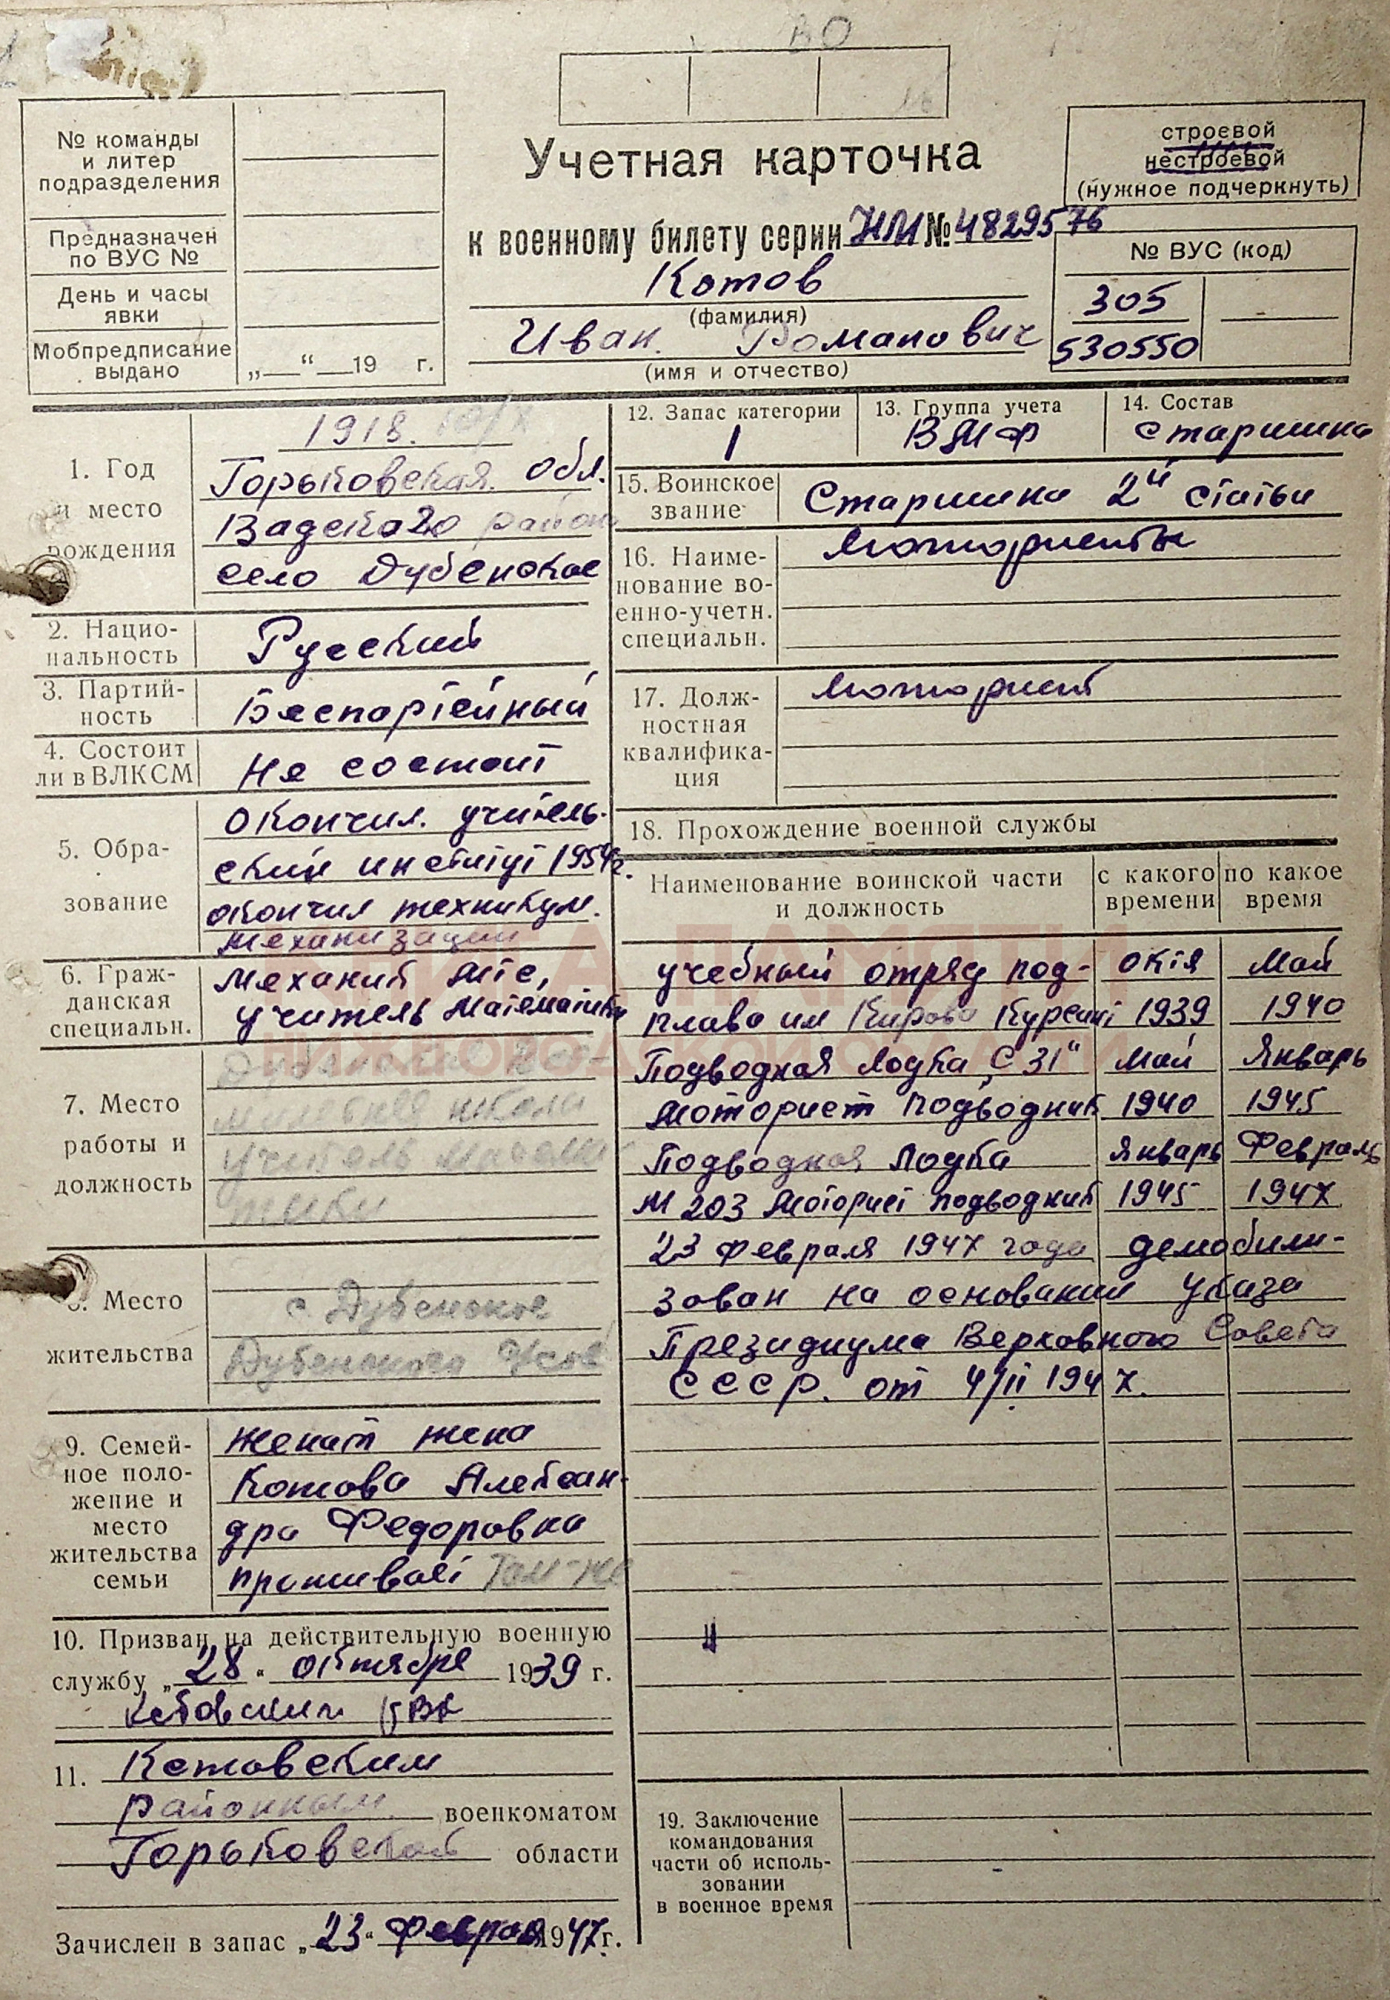 ВО
№ команды
и литер
подразделения
Предназначен
по ВУС №
День и часы
явки
Мобпредписание
выдано
„ “ 19 г.
Учетная карточка
к военному билету серии НМ № 4829576
Котов
(фамилия)
Иван Романович
(имя и отчество)
строевой
нестроевой
(нужное подчеркнуть)
№ ВУС (код)
305
530550
1. Год
и место
рождения
1918. 10/X
Горьковская обл.
Вадского района
село Дубенское
2. Нацио-
нальность
Русский
3. Партий-
ность
Беспартейный
4. Состоит
ли в ВЛКСМ
Не состоит
5. Обра-
зование
окончил учитель-
ский институт 1954г.
окончил техникум
механизации
6. Граж-
данская
специальн.
Механик мтс,
учитель математики
7. Место
работы и
должность
Дубенская
школа
учитель матема
тики
8. Место
жительства
с. Дубенское
Дубенского
9. Семей-
ное поло-
жение и
место
жительства
семьи
женат жена
Котова Алексан-
дра Федоровна
проживает там-же
10. Призван на действительную военную
службу „28“ октября 1939 г.
Кстовским РВК
11. Кстовским
районным военкоматом
Горьковской области
Зачислен в запас „23“ февраля 1947г.
12. Запас категории
1
13. Группа учета
ВМФ
14. Состав
старшина
15. Воинское
звание
Старшина 2й статьи
16. Наиме-
нование во-
енно-учетн.
специальн.
Мотористы
17. Долж-
ностная
квалифика-
ция
моторист
18. Прохождение военной службы
Наименование воинской части
и должность
с какого
времени
по какое
время
учебный отряд под- октя Май
плава им Кирова Курсант 1939 1940
Подводная лодка „С 31“ Май Январь
моторист подводник 1940 1945
Подводная лодка январь Февраль
М 203 моторист подводник 1945 1947
23 февраля 1947 года демобили-
зован на основании Указа
Президиума Верховного Совета
СССР. от 4/II 1947.
19. Заключение
командования
части об исполь-
зовании
в военное время
КНИГА ПАМЯТИ
НИЖЕГОРОДСКОЙ ОБЛАСТИ